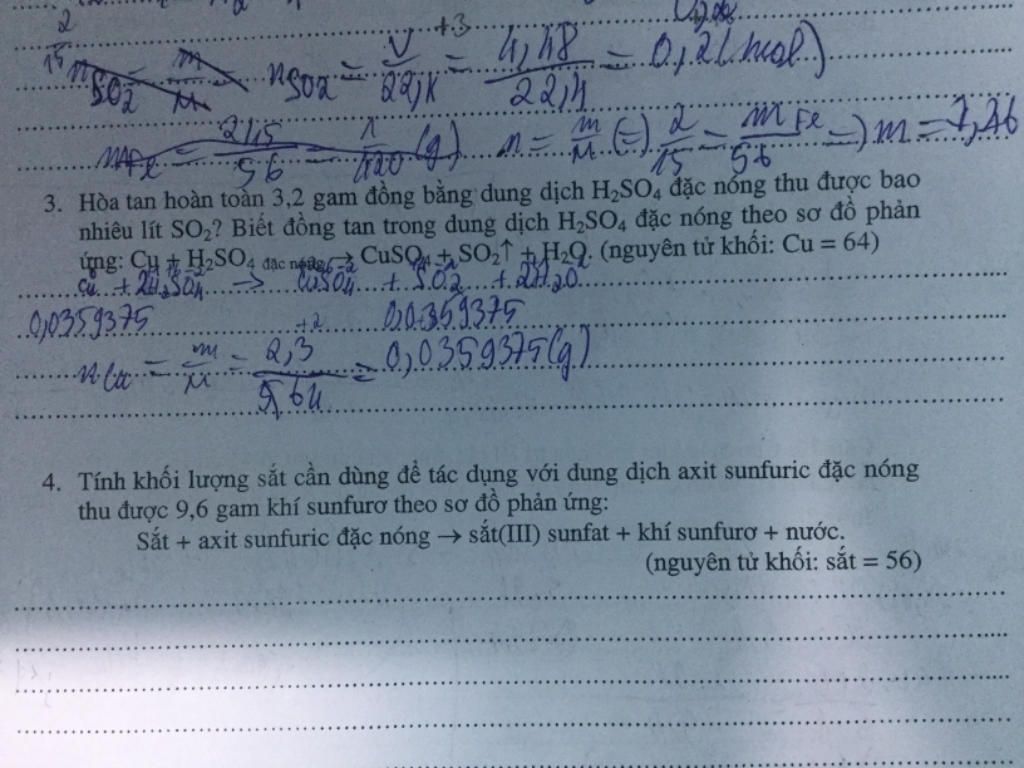 2
15 nSO2 = m/M nSO2 = V/22,4 = 4,48/22,4 = 0,2 (mol)
+3
= 2/15 / 56 = 1/420 (g) n = m/M (=) 2/15 = mFe/56 => m = 7,46
3. Hòa tan hoàn toàn 3,2 gam đồng bằng dung dịch H₂SO₄ đặc nóng thu được bao
nhiêu lít SO₂? Biết đồng tan trong dung dịch H₂SO₄ đặc nóng theo sơ đồ phản
ứng: Cu + H₂SO₄ đặc nóng → CuSO₄ + SO₂↑ + H₂O. (nguyên tử khối: Cu = 64)
Cu + 2H₂SO₄ → CuSO₄ + SO₂ + 2H₂O
0,0359375 0,0359375
+2
nCu = m/M = 2,3/64 = 0,0359375 (g)
4. Tính khối lượng sắt cần dùng để tác dụng với dung dịch axit sunfuric đặc nóng
thu được 9,6 gam khí sunfurơ theo sơ đồ phản ứng:
Sắt + axit sunfuric đặc nóng → sắt(III) sunfat + khí sunfurơ + nước.
(nguyên tử khối: sắt = 56)